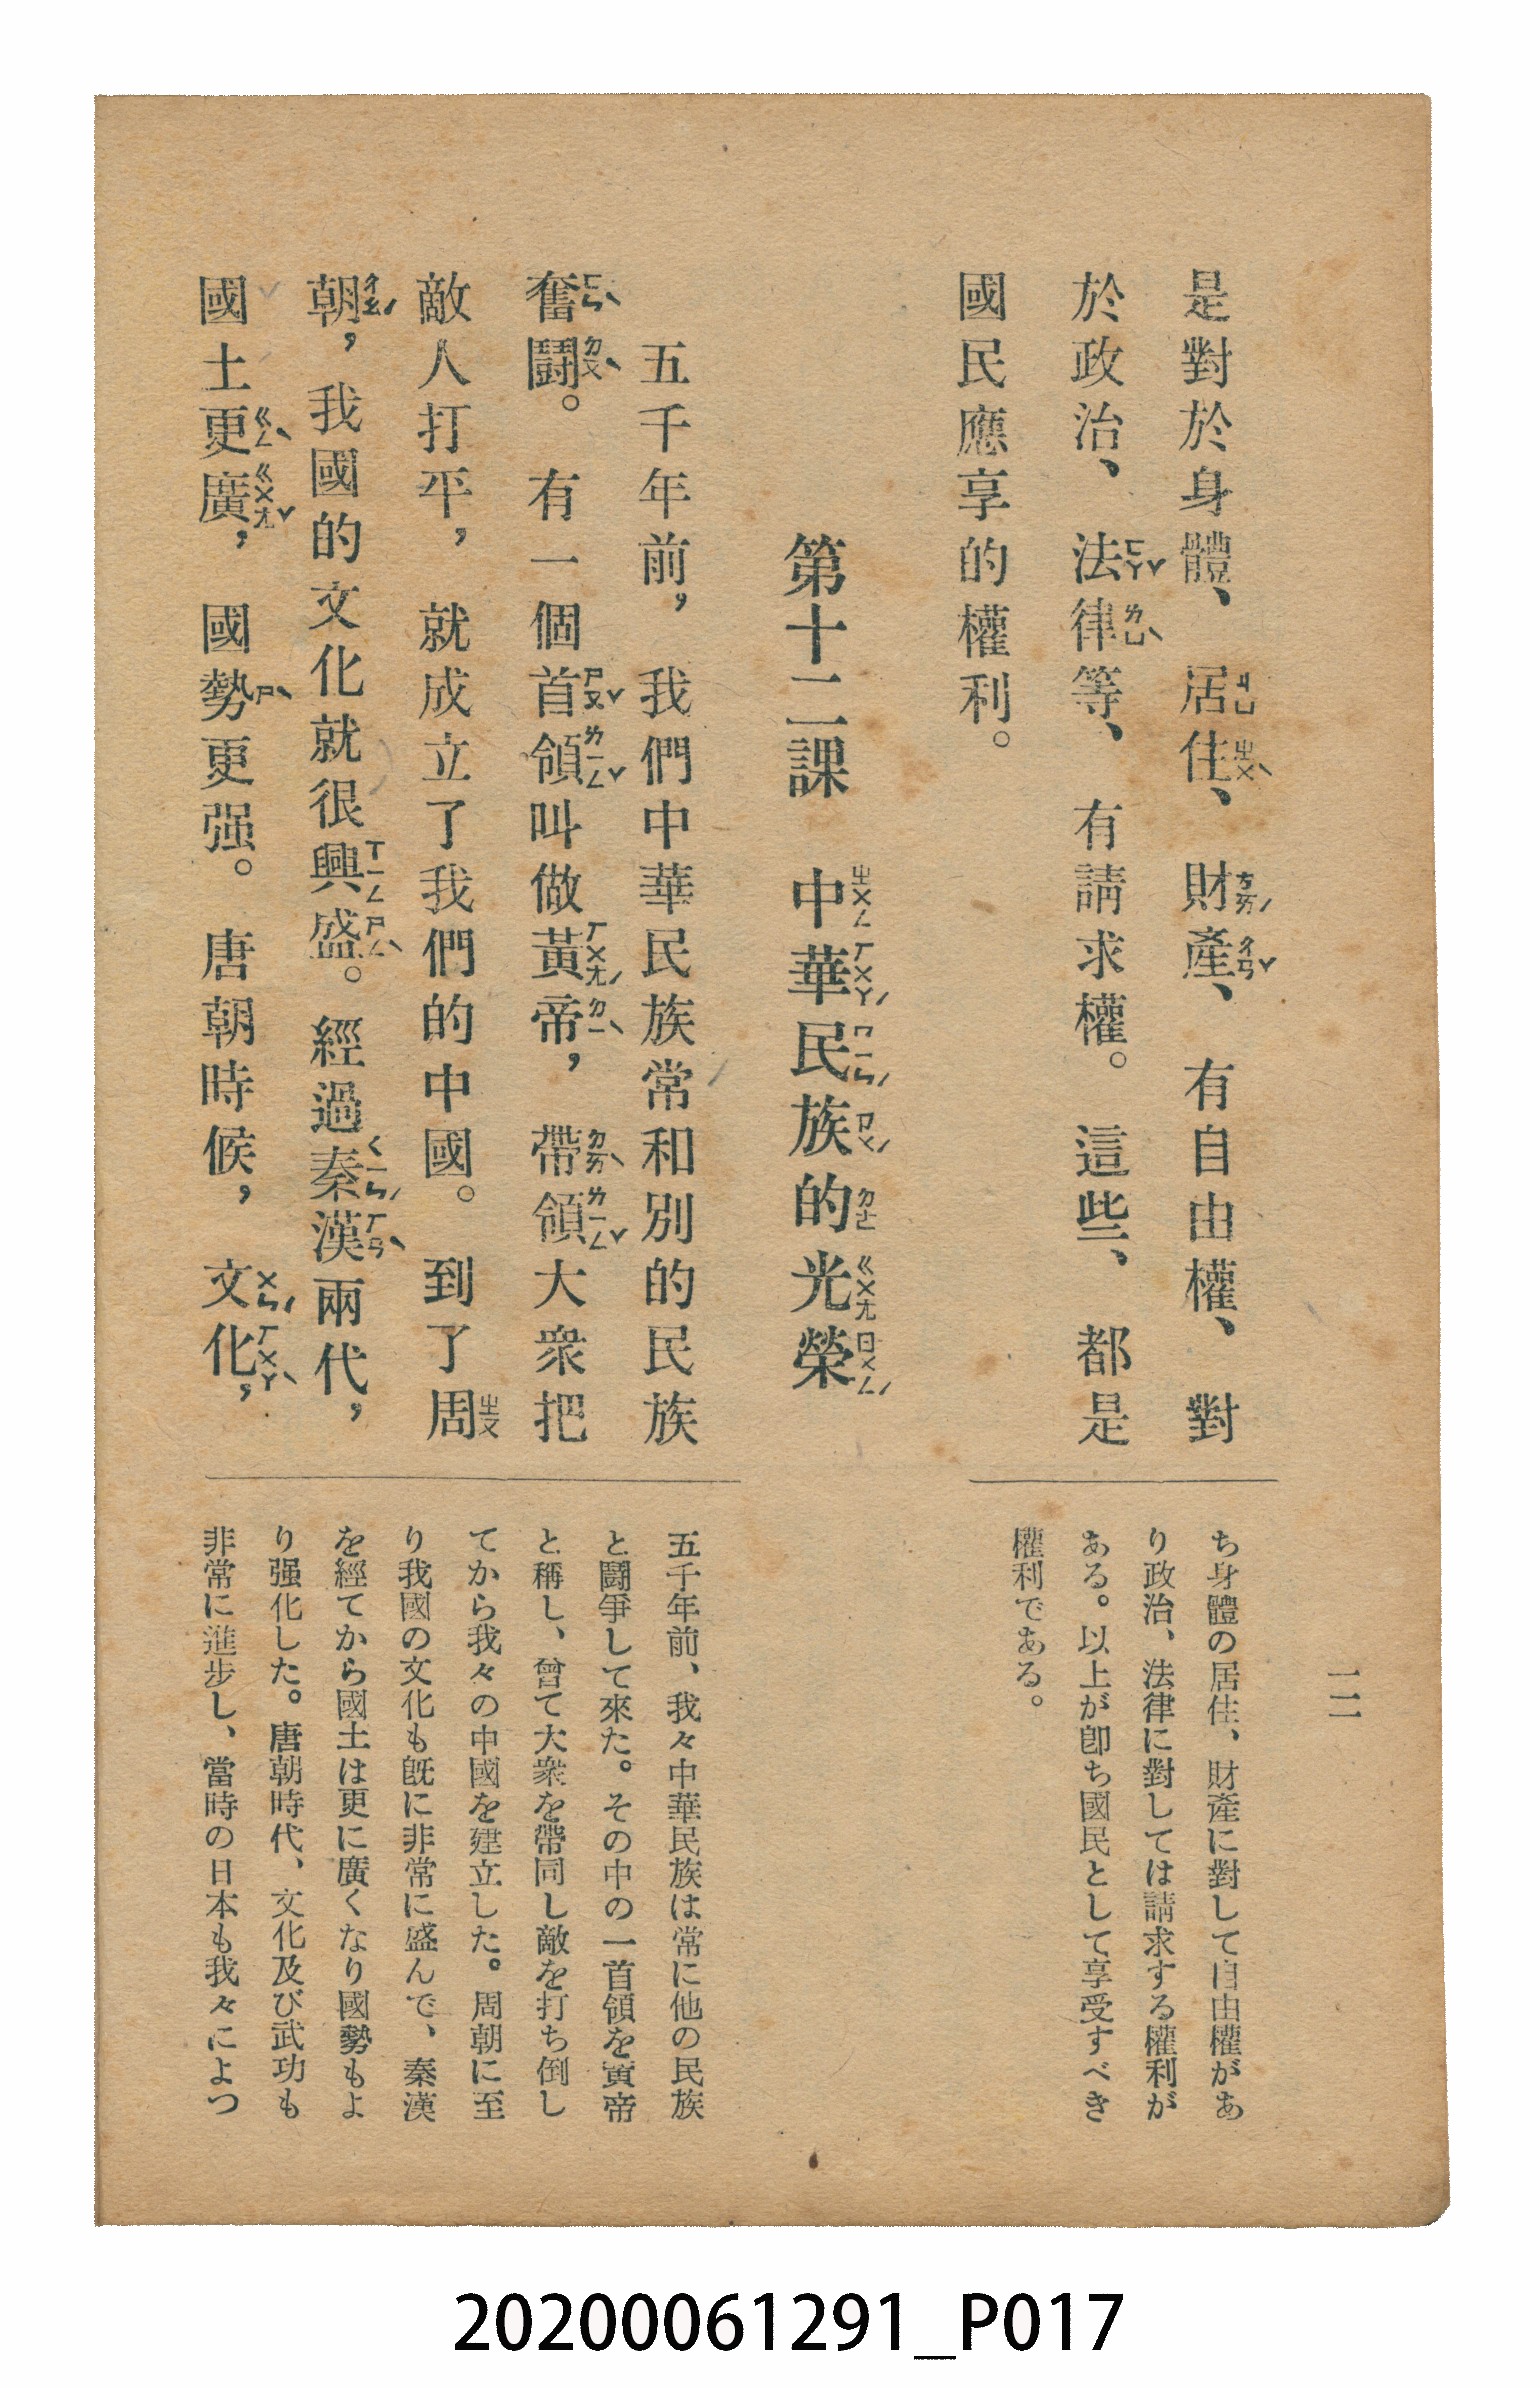 是對於身體、居住、財產、有自由權、對
於政治、法律等、有請求權。這些、都是
國民應享的權利。
第十二課 中華民族的光榮
五千年前，我們中華民族常和別的民族
奮鬪。有一個首領叫做黃帝，帶領大衆把
敵人打平，就成立了我們的中國。到了周
朝，我國的文化就很興盛。經過秦漢兩代，
國土更廣，國勢更强。唐朝時候，文化，
ㄐㄩ ㄓㄨˋ ㄘㄞˊ ㄔㄢˇ
ㄈㄚˇ ㄌㄩˋ
ㄓㄨㄥ ㄏㄨㄚˊ ㄇㄧㄣˊ ㄗㄨˊ ㄉㄜ ㄍㄨㄤ ㄖㄨㄥˊ
ㄈㄣˋ ㄉㄡˋ ㄕㄡˇ ㄌㄧㄥˇ ㄏㄨㄤˊ ㄉㄧˋ ㄉㄞˋ ㄌㄧㄥˇ
ㄓㄡ
ㄔㄠˊ ㄒㄧㄥ ㄕㄥˋ ㄑㄧㄣˊ ㄏㄢˋ
ㄍㄥˋ ㄍㄨㄤˇ ㄕˋ ㄨㄣˊ ㄏㄨㄚˋ
一二
ち身體の居住、財產に對して自由權があ
り政治、法律に對しては請求する權利が
ある。以上が卽ち國民として享受すべき
權利である。
五千年前、我々中華民族は常に他の民族
と鬪爭して來た。その中の一首領を黃帝
と稱し、曾て大衆を帶同し敵を打ち倒し
てから我々の中國を建立した。周朝に至
り我國の文化も旣に非常に盛んで、秦漢
を經てから國土は更に廣くなり國勢もよ
り强化した。唐朝時代、文化及び武功も
非常に進步し、當時の日本も我々によつ
20200061291_P017